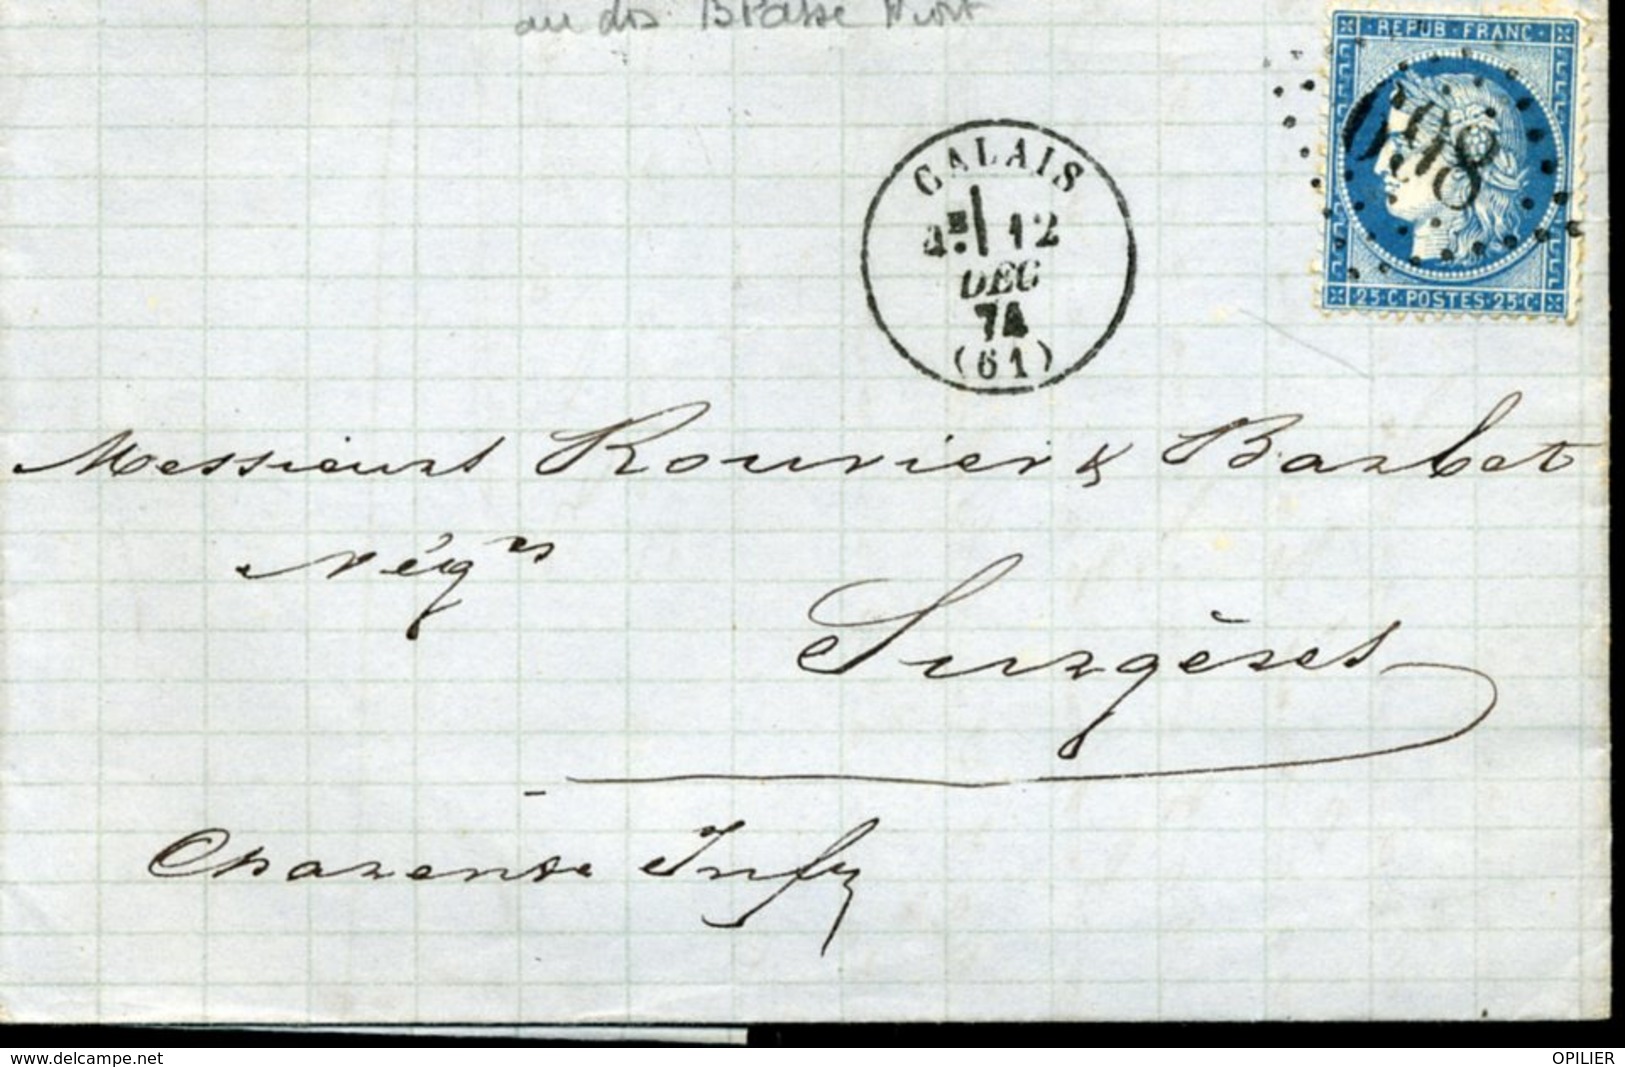 au dos BPasse Niort
REPUB · FRANC ·
698
25·C·POSTES·25·C
CALAIS
12
DEC
74
(61)
Messieurs Rouvier & Barbet
Négts
Surgères
Charente Infre
www.delcampe.net
OPILIER